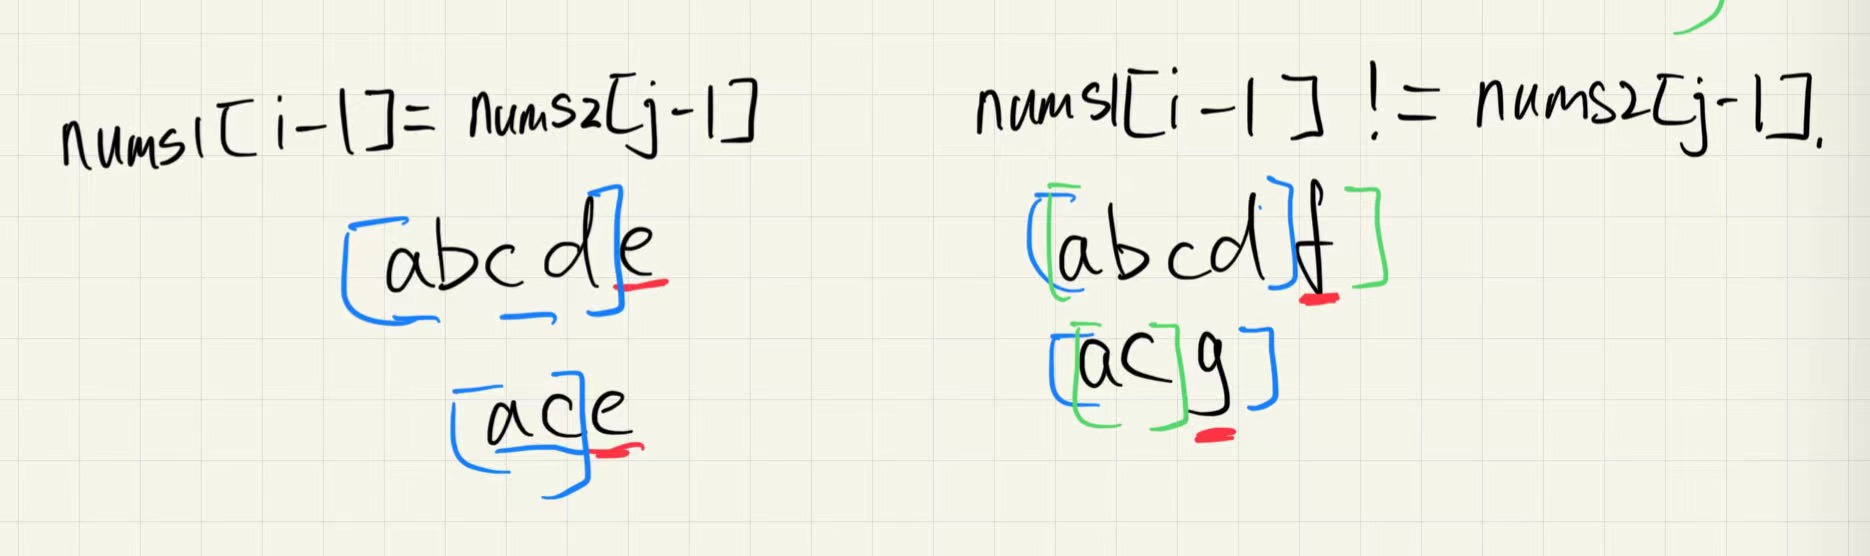 nums1[i-1]= nums2[j-1]
[abcd]e
[ac]e
nums1[i-1] != nums2[j-1].
[[abcd]f]
[[ac]g]